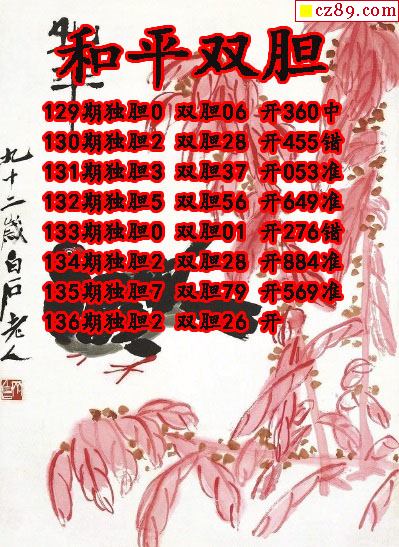 cz89.com
和平双胆
129期独胆0 双胆06 开360中
130期独胆2 双胆28 开455错
131期独胆3 双胆37 开053准
132期独胆5 双胆56 开649准
133期独胆0 双胆01 开276错
134期独胆2 双胆28 开884准
135期独胆7 双胆79 开569准
136期独胆2 双胆26 开
九十二岁白石老人